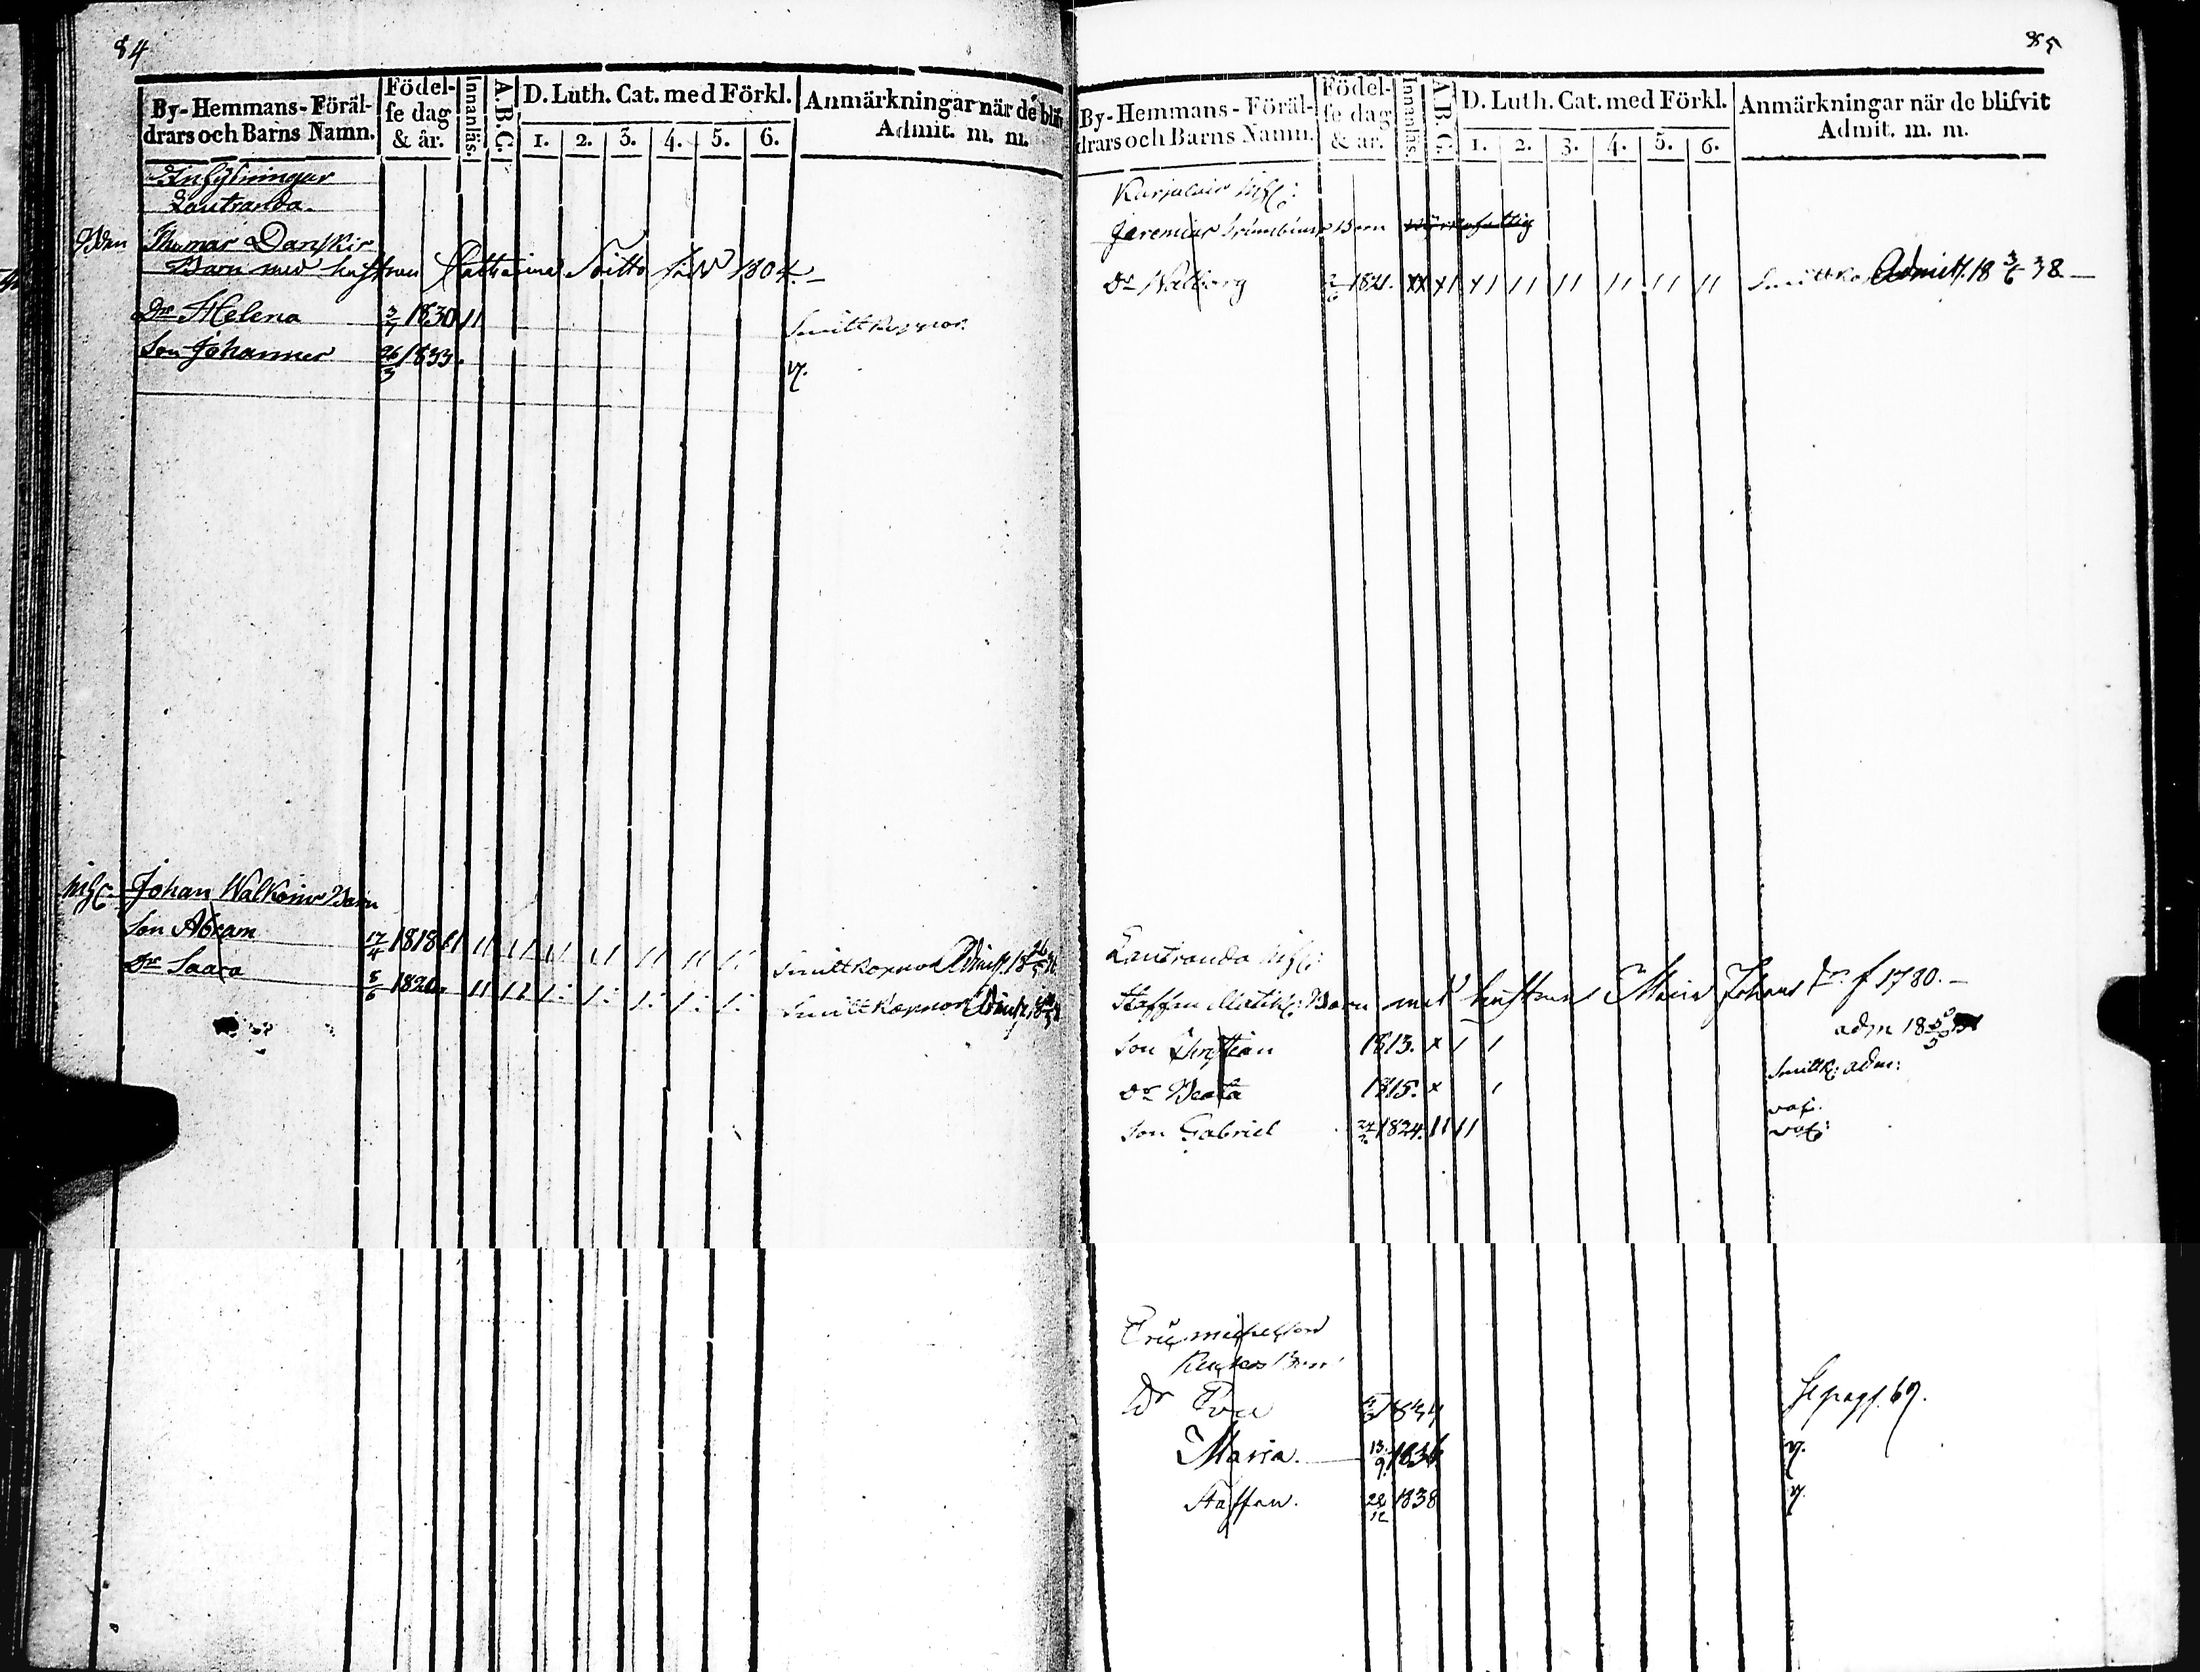 84
By-Hemmans-Föräl-
drars och Barns Namn.
Födel-
se dag
& år.
Innanläs.
A.B.C.
D. Luth. Cat. med Förkl.
1. 2. 3. 4. 5. 6.
Anmärkningar när de blifv
Admit. m. m.
Lautranda.
Thomas Danskis
Barn med hustrun Catharina Soitto född 1804.
Dr Helena 3/7 1830 11 Smittkoppor
Son Johannes 26/3 1833. v.
Inhs: Johan Walkonens Barn
Son Abram 17/4 1818 11 11 11 11 11 11 11 11 Smittkoppor Admitt. 18
Dr Saara 5/6 1820. 11 Smittkoppor Admitt. 18
85
By-Hemmans-Föräl-
drars och Barns Namn.
Födel-
se dag
& år.
Innanläs.
A.B.C.
D. Luth. Cat. med Förkl.
1. 2. 3. 4. 5. 6.
Anmärkningar när de blifvit
Admit. m. m.
Karjalais Inhs:
Jeremias Barn
Dr Walborg 1821. xx x1 x1 11 11 11 11 11 Smittko Admitt. 18 3/6 38
Lautranda Inhs:
Staffan Barn med hustrun Maria Johans Dr f 1780.
adm 18
Son Christian 1813. x 1 1 Smittk: adm:
Dr Beata 1815. x 1 vac.
Son Gabriel 1824. 11 11 vac:
Eric Michelsson
Barn
Dr Eva 1834 Se pag. 67.
Maria. 13/9 1836 v.
Staffan. 22/12 1838 v.